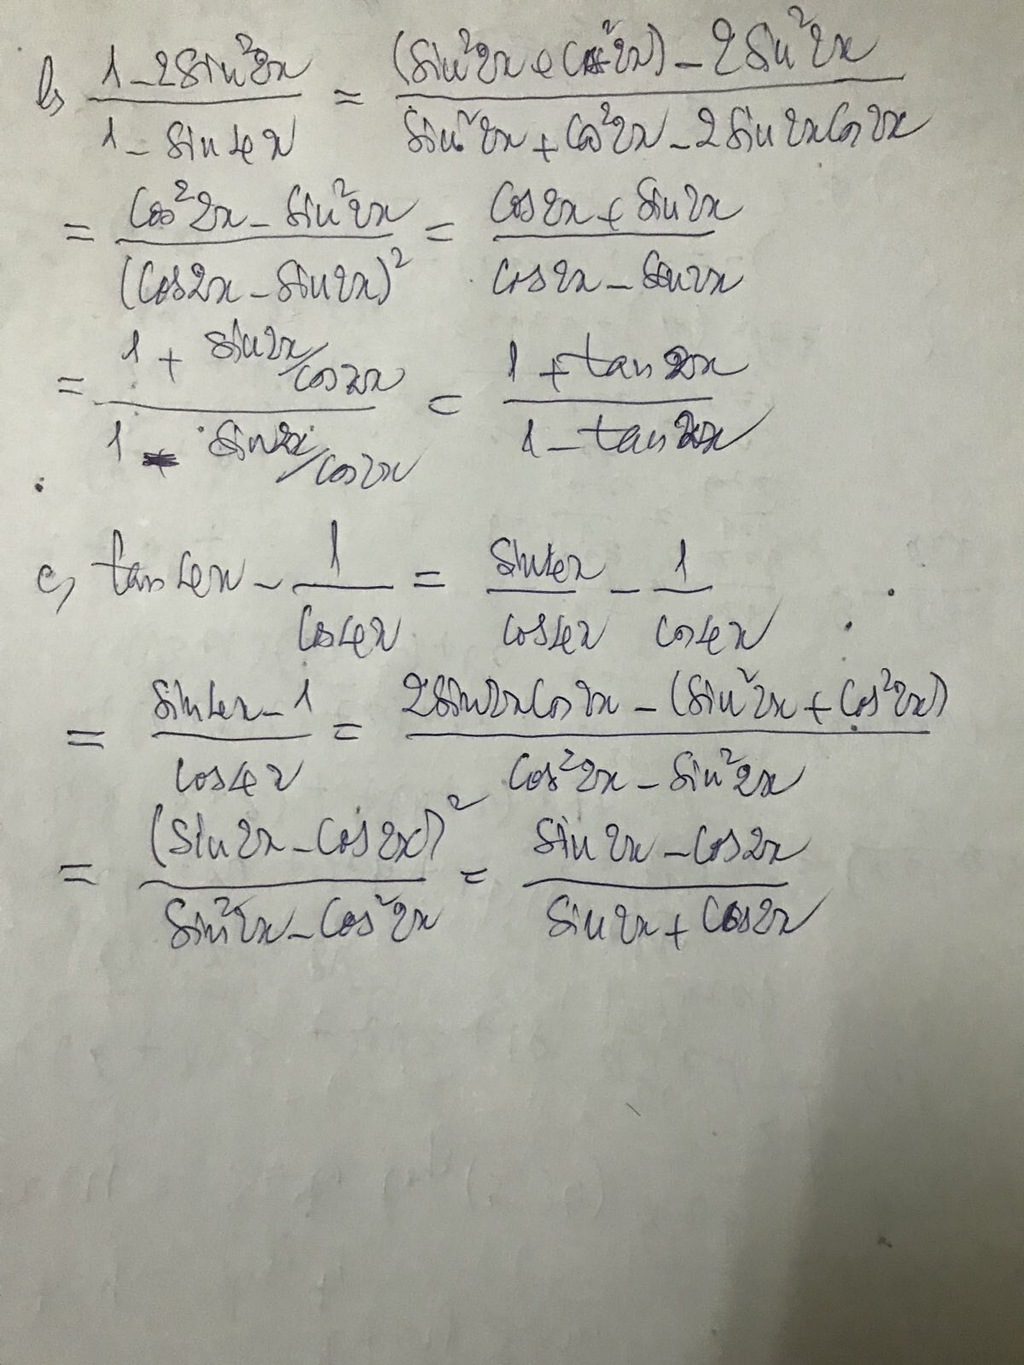 b, (1 - 2Sin²2x)/(1 - Sin4x) = ((Sin²2x + Cos²2x) - 2Sin²2x)/(Sin²2x + Cos²2x - 2Sin2xCos2x)
= (Cos²2x - Sin²2x)/(Cos2x - Sin2x)² = (Cos2x + Sin2x)/(Cos2x - Sin2x)
= (1 + Sin2x/Cos2x)/(1 - Sin2x/Cos2x) = (1 + tan2x)/(1 - tan2x)
c, tan4x - 1/Cos4x = Sin4x/Cos4x - 1/Cos4x
= (Sin4x - 1)/Cos4x = (2Sin2xCos2x - (Sin²2x + Cos²2x))/(Cos²2x - Sin²2x)
= (Sin2x - Cos2x)²/(Sin²2x - Cos²2x) = (Sin2x - Cos2x)/(Sin2x + Cos2x)